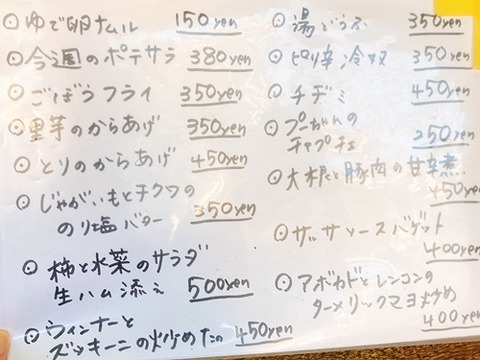 ⊙ ゆで卵ナムル 150yen
⊙ 今週のポテサラ 380yen
⊙ ごぼうフライ 350yen
⊙ 里芋のからあげ 350yen
⊙ とりのからあげ 450yen
⊙ じゃがいもとチクワの
のり塩バター 350yen
⊙ 柿と水菜のサラダ
生ハム添え 500yen
⊙ ウィンナーと
ズッキーニの炒めたの 450yen
⊙ 湯どうふ 350yen
⊙ ピリ辛冷奴 350yen
⊙ チヂミ 450yen
⊙ プーさんの
チャプチェ 250yen
⊙ 大根と豚肉の甘辛煮
450yen
⊙ サルサソースバゲット
400yen
⊙ アボカドとレンコンの
ターメリックマヨ炒め
400yen